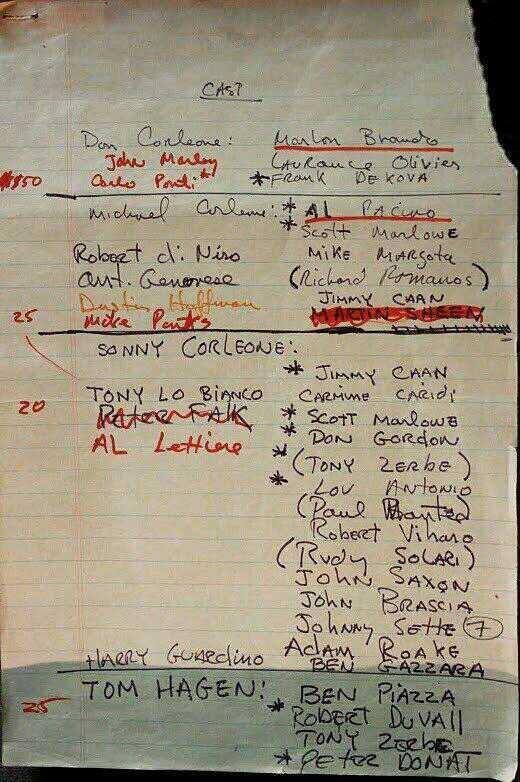 CAST
Don Corleone: Marlon Brando
John Marley Laurance Olivier
Carlo Ponti* * FRANK DE KOVA
Michael Corleone: * AL PACINO
* Scott Marlowe
Robert di Niro MIKE MARGOTA
Ant. Genovese (Richard Romanos)
Dustin Hoffman JIMMY CAAN
25 Mike Parks MARTIN SHEEN
SONNY CORLEONE:
* JIMMY CAAN
TONY LO BIANCO CARMINE CARIDI
20 Peter FALK * SCOTT MARLOWE
AL Lettiere * DON GORDON
* (TONY ZERBE)
* LOU ANTONIO
(Paul Banteo)
Robert Viharo
(RUDY SOLARI)
JOHN SAXON
JOHN BRASCIA
Johnny SETTE 7
ADAM ROAKE
HARRY GUARDINO BEN GAZZARA
TOM HAGEN: BEN PIAZZA
25 * ROBERT DUVAll
TONY ZERBE
* PETER DONAT